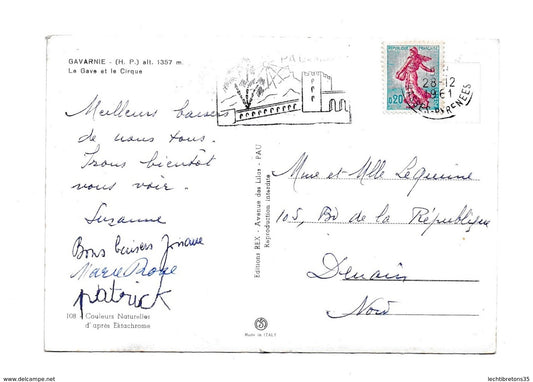 GAVARNIE - (H. P.) alt. 1357 m.
Le Gave et le Cirque
Meilleurs baisers
de nous tous.
Irons bientôt
vous voir.
Suzanne
Bons baisers Josiane
Marie Rose
patrick
108 - Couleurs Naturelles
d'après Ektachrome
Editions REX - Avenue des Lilas - PAU
Reproduction interdite
Made in ITALY
REPUBLIQUE FRANÇAISE
0,20
28-12
1961
Mme et Mlle Lequine
105, Bd de la République
Denain
Nord
lechtibretons35